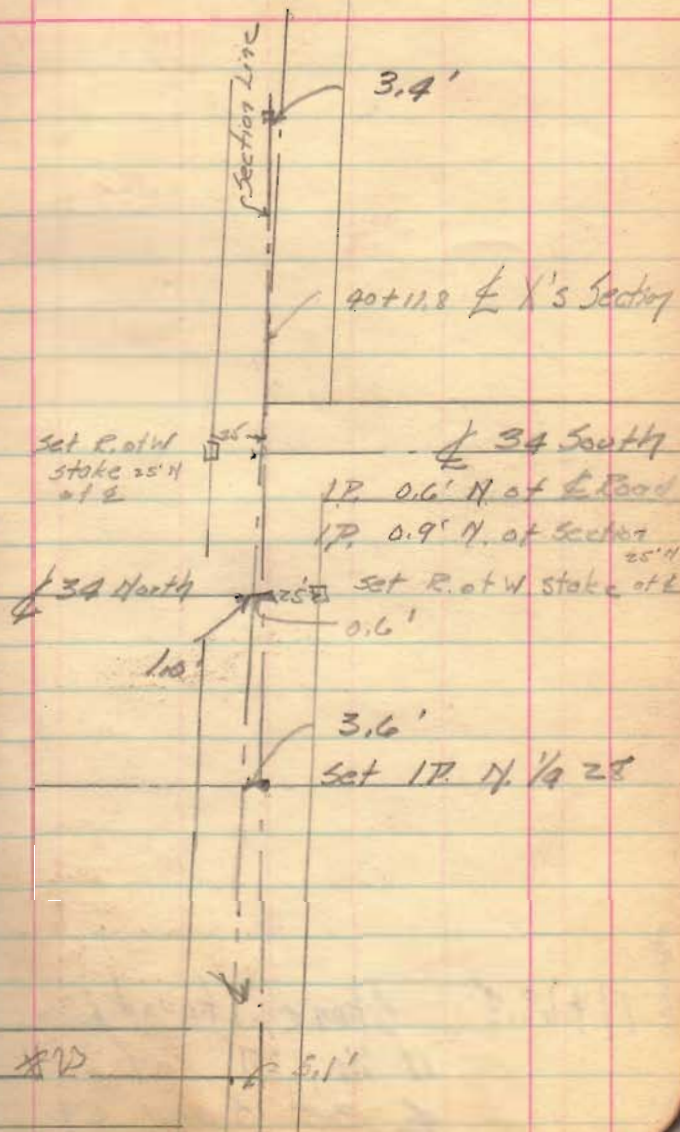 Section Line
3.4'
40+11.8 ℄ X's Section
set R. of W
stake 25' N
of ℄
25
℄ 34 South
I.P. 0.6' N. of ℄ Road
I.P. 0.9' N. of Section
25' N
℄ 34 North
25'
set R. of W stake of ℄
0.6'
1.0'
3.6'
Set I.P. N. 1/4 28
℄
5.1'